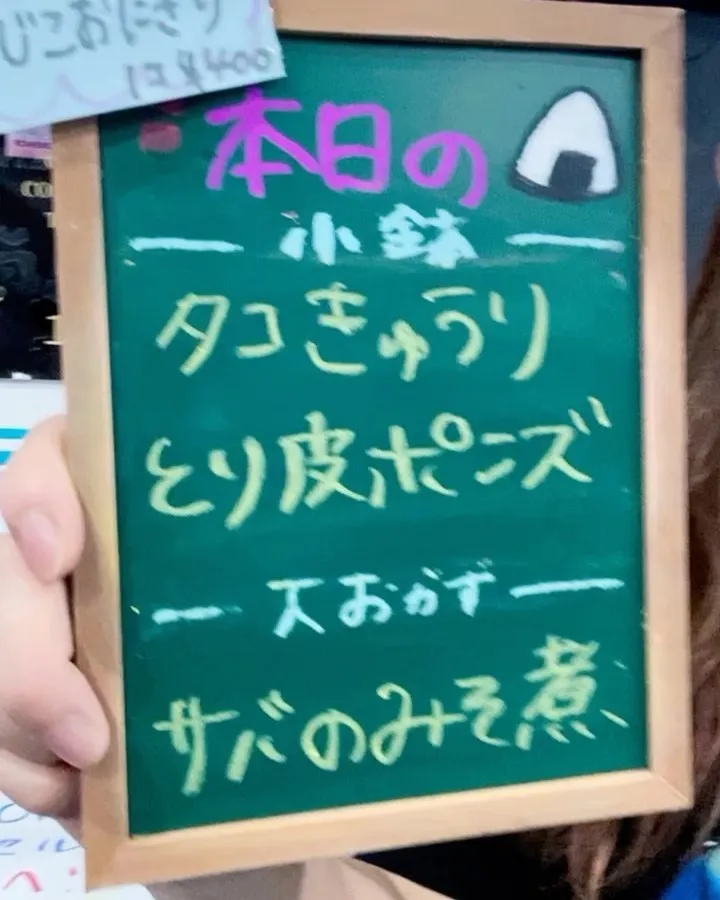 じこおにぎり
1コ¥400
本日の
小鉢
タコきゅうり
とり皮ポンズ
大おかず
サバのみそ煮